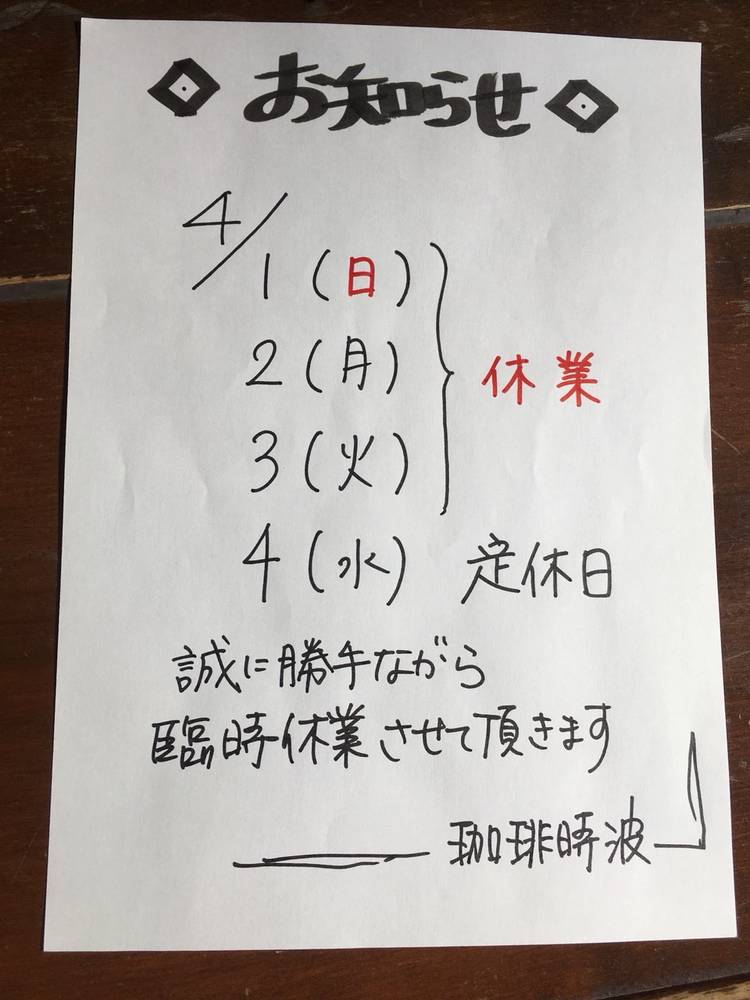 お知らせ
4/1(日)
2(月) 休業
3(火)
4(水) 定休日
誠に勝手ながら
臨時休業させて頂きます
珈琲時波